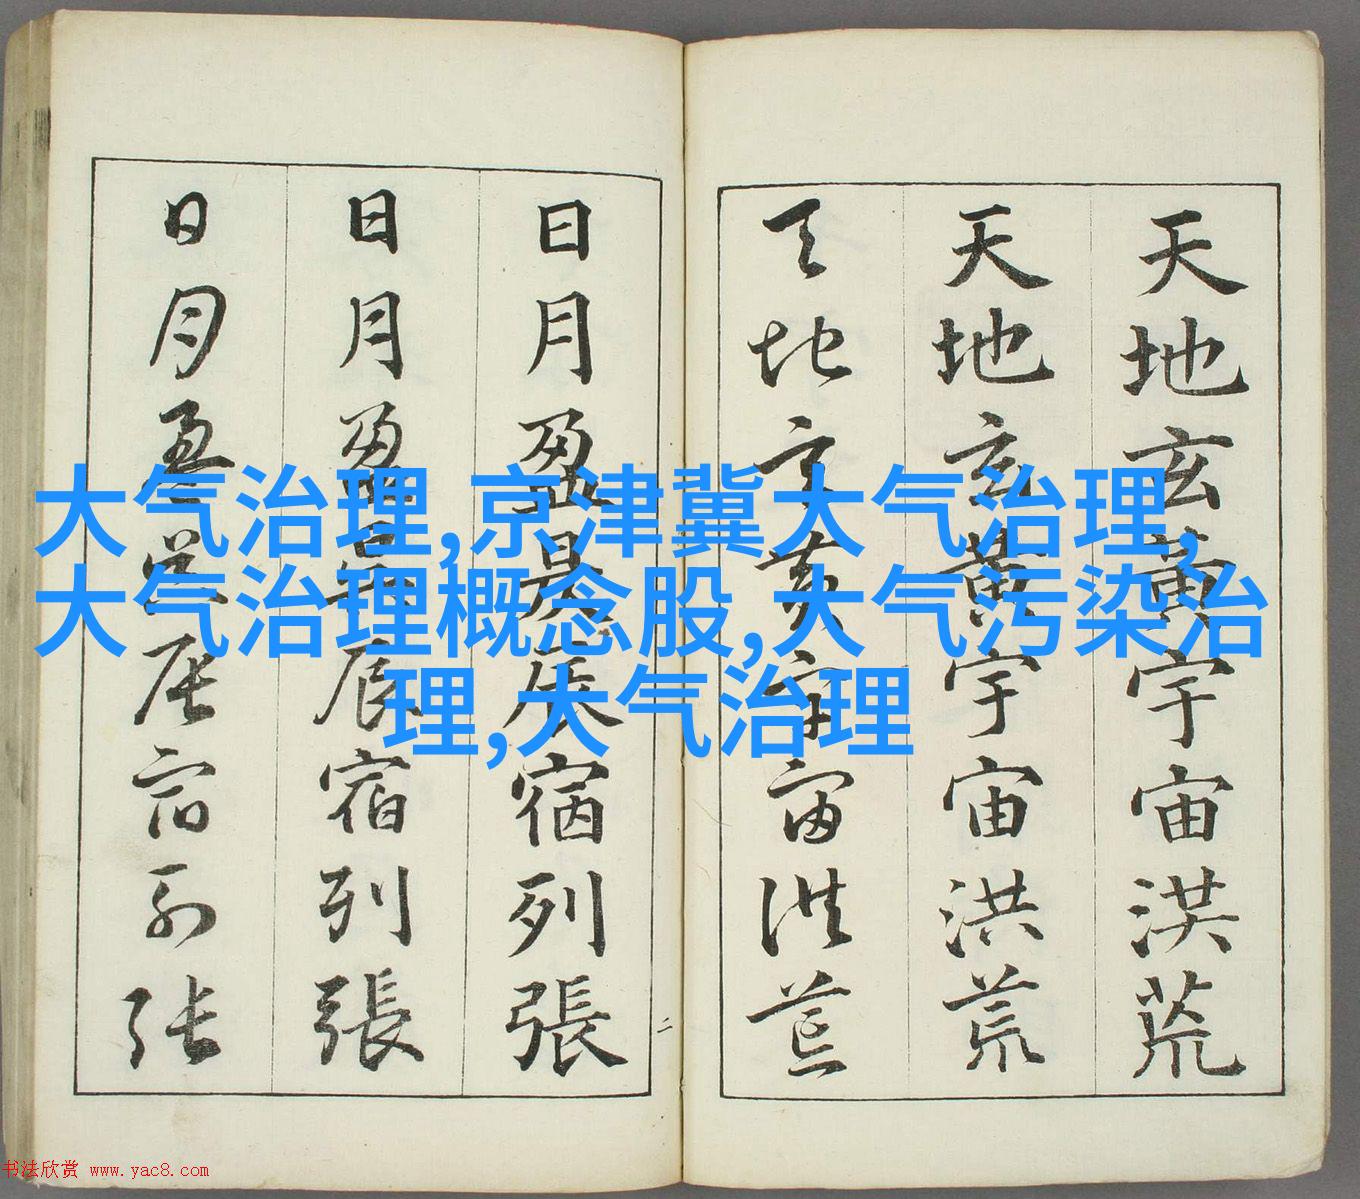 天地玄黃宇宙洪荒
天地玄黃宇宙洪荒
天地玄黃宇宙洪荒
日月盈昃辰宿列張
日月盈昃辰宿列張
日月盈昃辰宿列張
二
大气治理,京津冀大气治理,
大气治理概念股,大气污染治
理,大气治理
书法欣赏 www.yac8.com